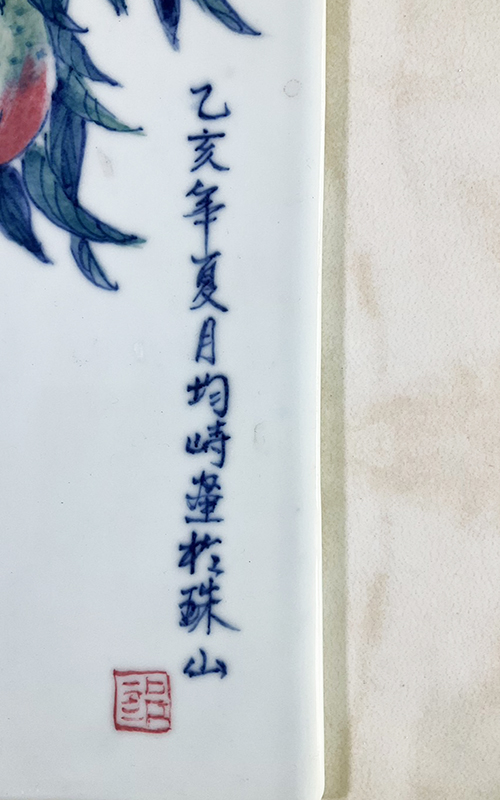 乙亥年夏月均峙画於珠山